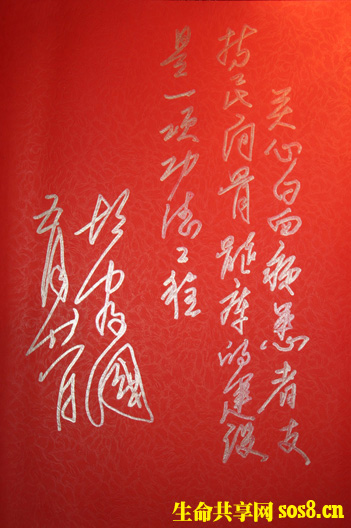 关心白血病患者支
持民间骨髓库的建设
是一项功德工程
五月
生命共享网 sos8.cn